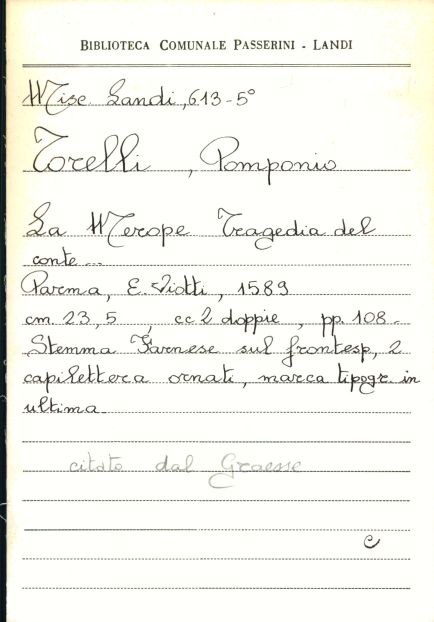 BIBLIOTECA COMUNALE PASSERINI - LANDI
Misc Landi, 613-5°
Torelli, Pomponio
La Merope Tragedia del
conte ...
Parma, E. Viotti, 1589
cm. 23,5, cc 2 doppie, pp. 108.
Stemma Farnese sul frontesp, 2
capilettera ornati, marca tipogr. in
ultima.
citato dal Graesse
c